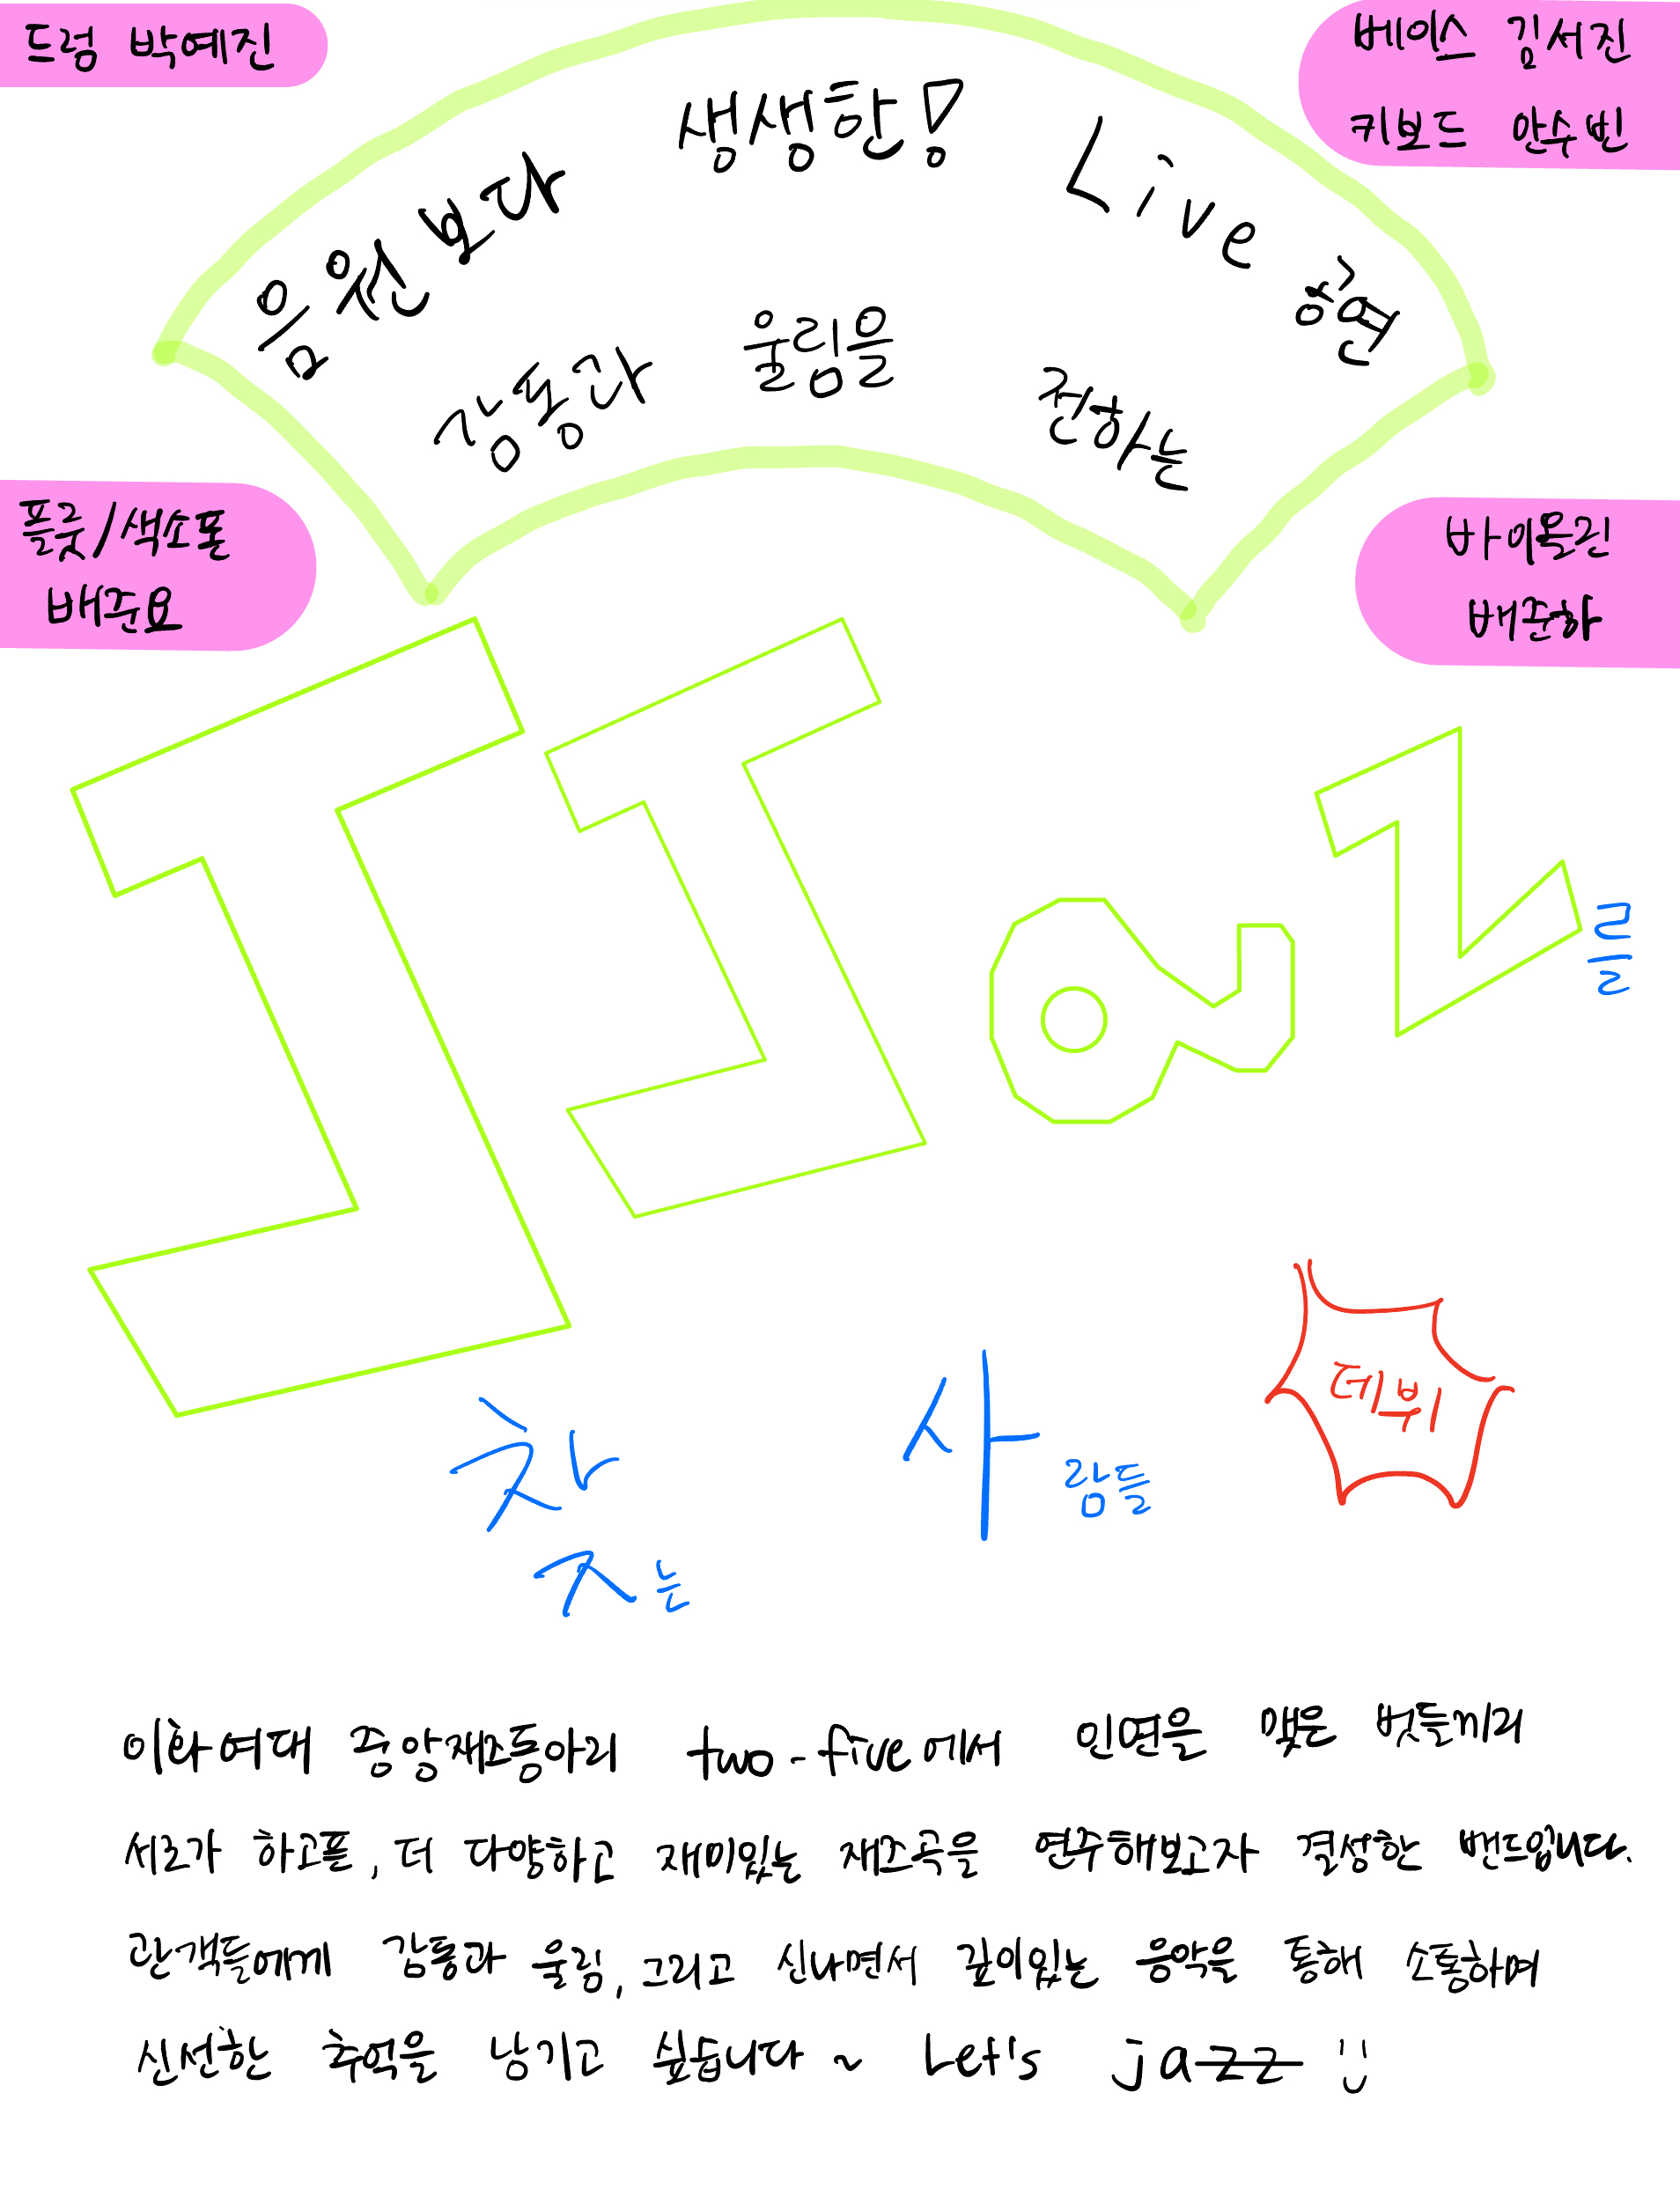 드럼 박예진
베이스 김서진
키보드 안수빈
음원보다 생생한! Live 공연
감동과 울림을 전하는
플룻/색소폰
배준요
바이올린
배준하
JJaz를
찾는 사람들
데뷔
이화여대 중앙재즈동아리 two-five에서 인연을 맺은 벗들끼리
서로가 하고픈, 더 다양하고 재미있는 재즈곡을 연주해보고자 결성한 밴드입니다.
관객들에게 감동과 울림, 그리고 신나면서 깊이있는 음악을 통해 소통하며
신선한 추억을 남기고 싶습니다~ Let's jazz :)